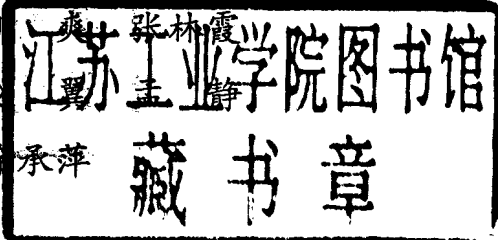 江苏工业学院图书馆
藏书章
爽 张林霞
翼 孟 静
承萍